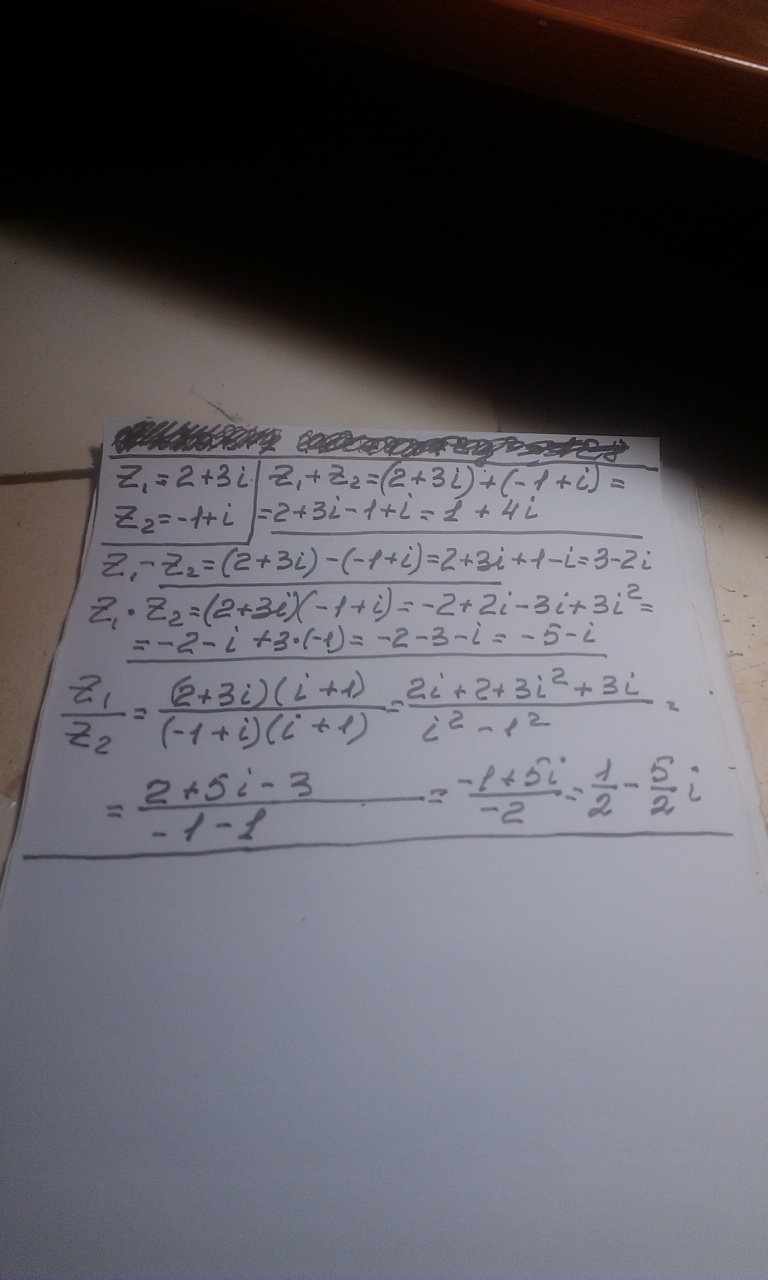 Z₁=2+3i
Z₂=-1+i
Z₁+Z₂=(2+3i)+(-1+i)=
=2+3i-1+i=1+4i
Z₁-Z₂=(2+3i)-(-1+i)=2+3i+1-i=3-2i
Z₁·Z₂=(2+3i)(-1+i)=-2+2i-3i+3i²=
=-2-i+3·(-1)=-2-3-i=-5-i
Z₁/Z₂=(2+3i)(i+1)/(-1+i)(i+1)=2i+2+3i²+3i/i²-1²=
=2+5i-3/-1-1=-1+5i/-2=1/2-5/2i